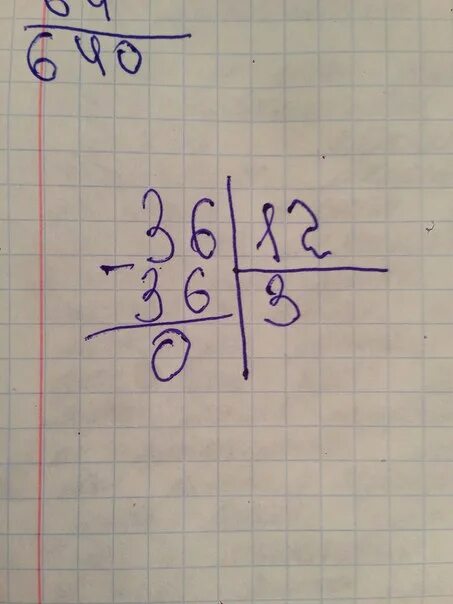 640
36 12
- 36 3
0